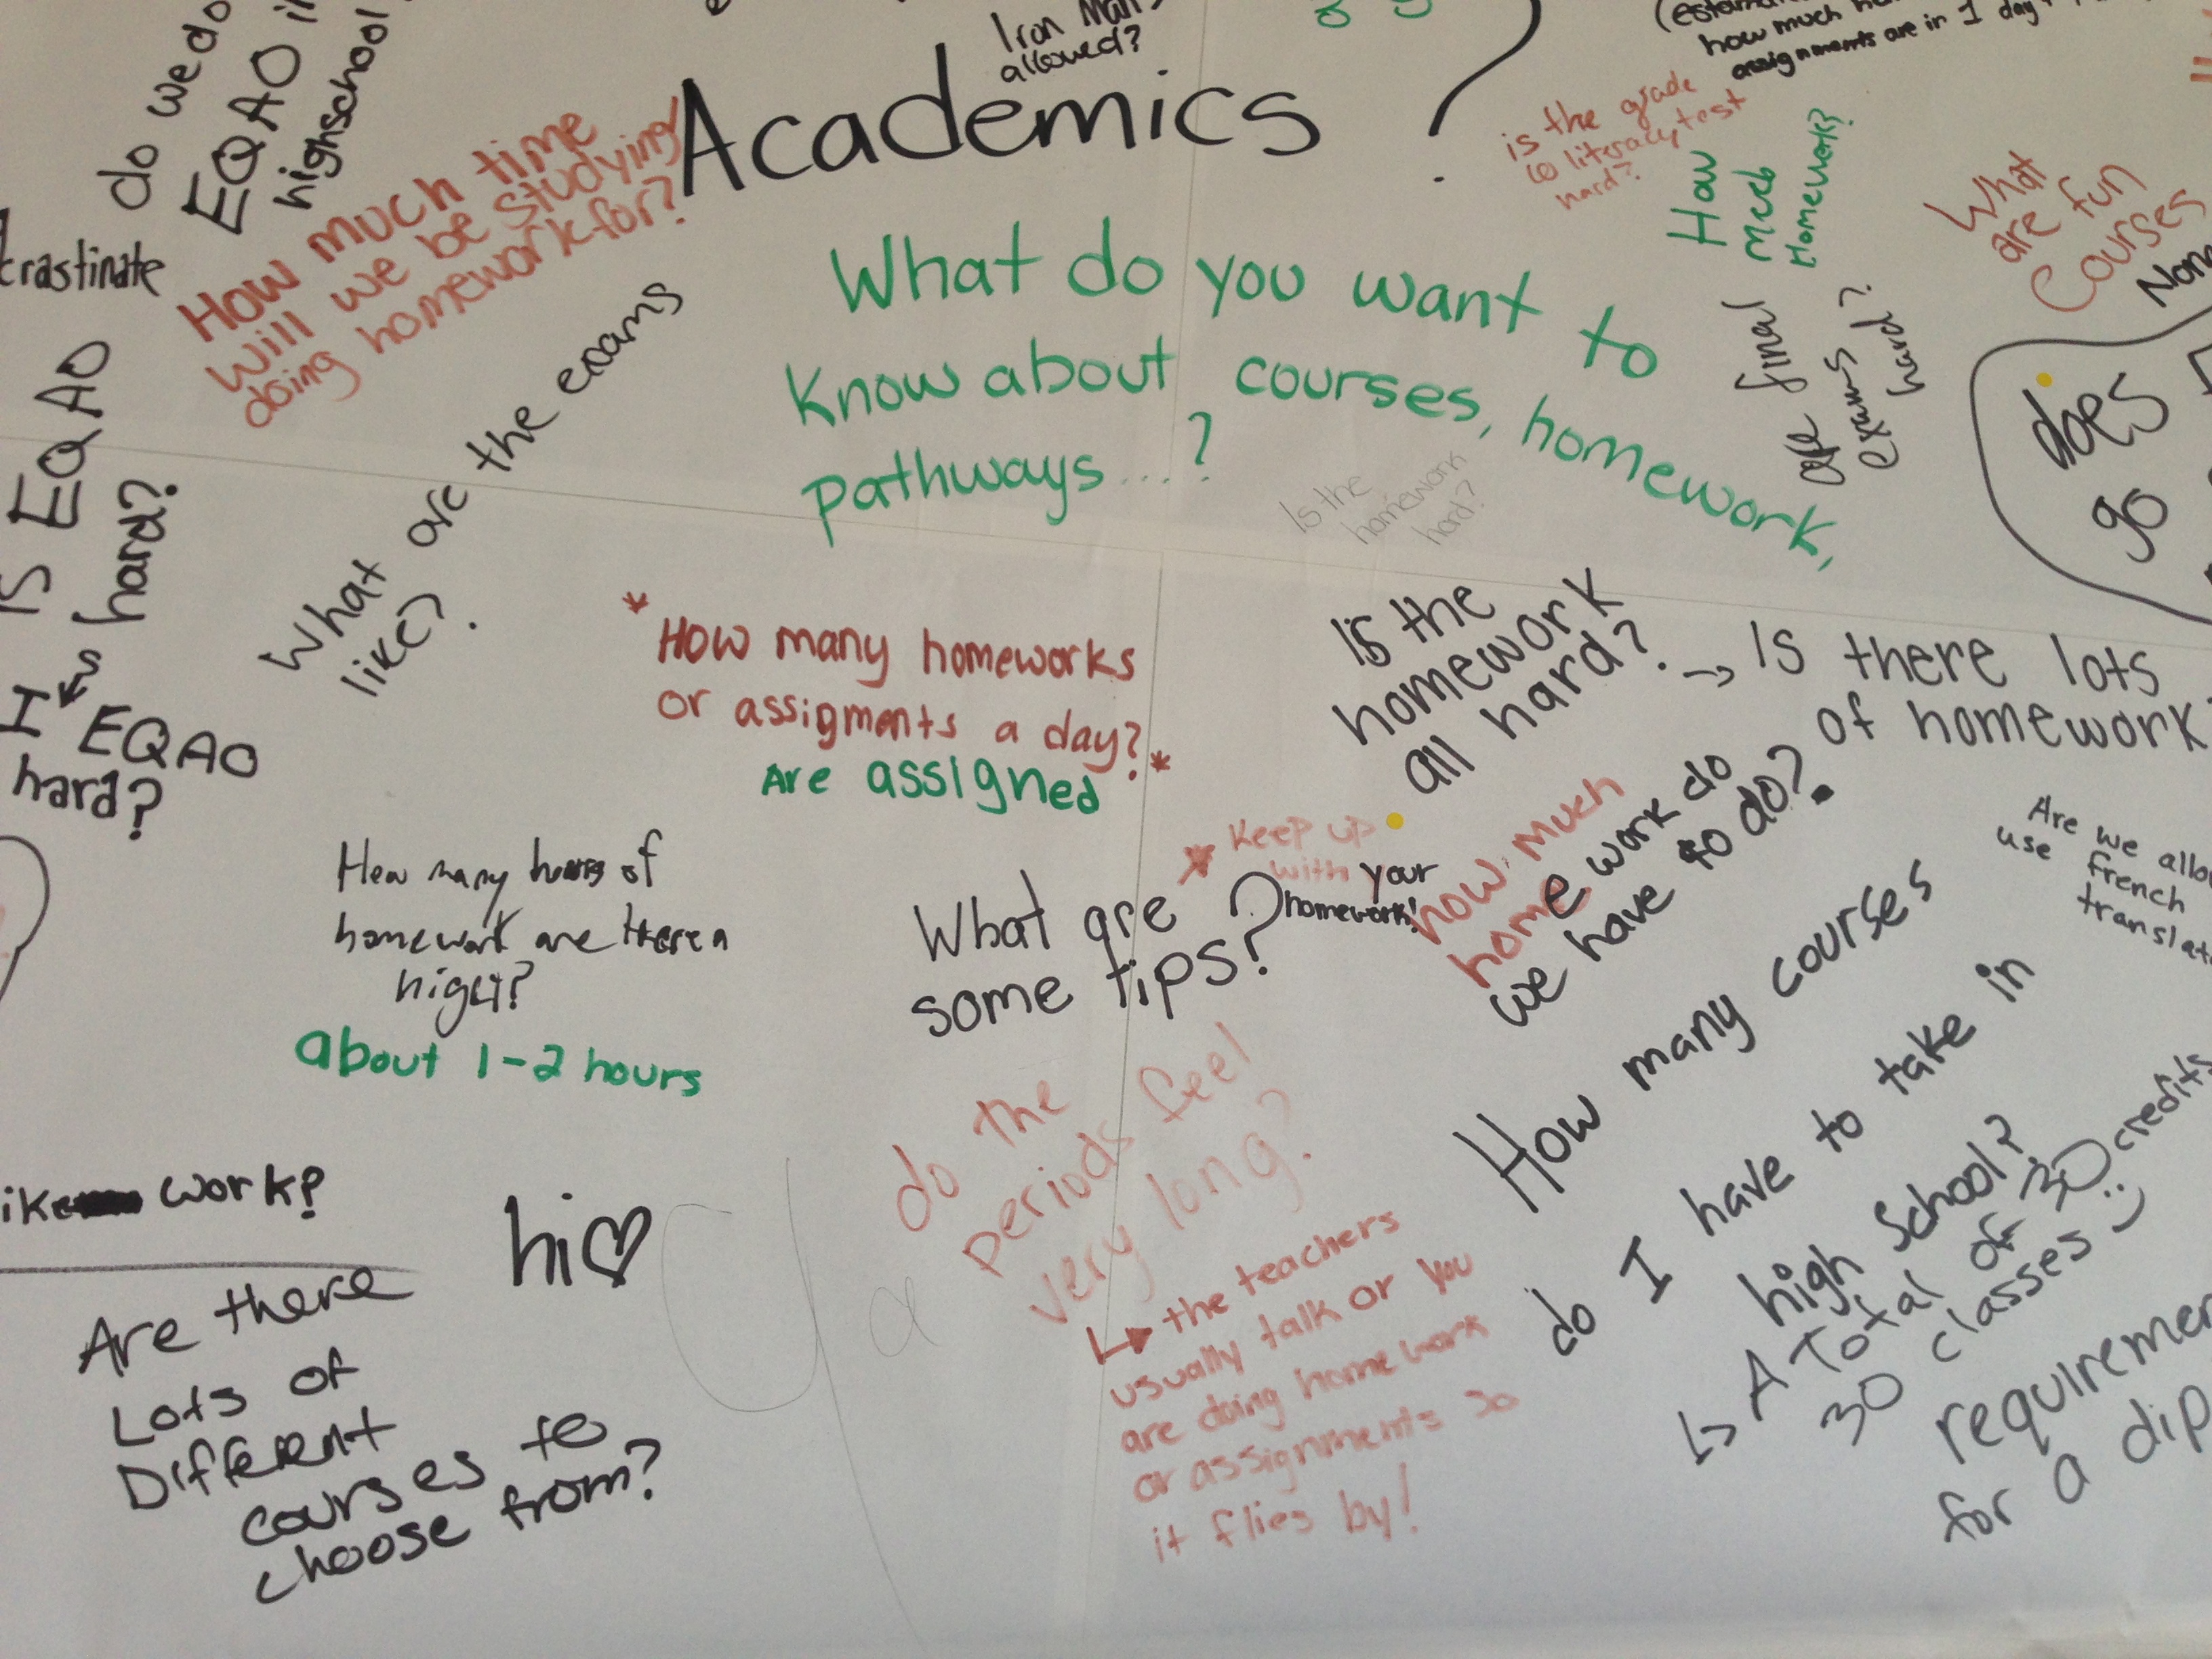 do we do
EQAO
highschool
Iron Man
allowed?
how much
assignments are in 1 day
Academics ?
How much time
will we be studying/
doing homework for?
is the grade
10 literacy test
hard?
How
much
Homework?
What
are fun
Courses
trastinate
What do you want to
know about courses, homework,
pathways...?
are final
exams
hard?
does
go
IS EQAO
hard?
Is
EQAO
hard?
What are the exams
like?
Is the
homework
hard?
* How many homeworks
or assigments a day? *
Are assigned
Is the
homework
all hard?
→ Is there lots
of homework
How many hours of
homework are there a
night?
about 1-2 hours
What are
some tips?
Keep up
with your
homework!
how much
home work do
we have to do?
Are we
use french
How many courses
do I have to take in
high School?
↳ A Total of 30 credits
30 classes :)
requiremen
for a dip
do the
periods feel
very long?
↳ the teachers
usually talk or you
are doing homework
or assignments so
it flies by!
ike work?
hi♡
Are there
Lots of
Different
courses to
choose from?
ya